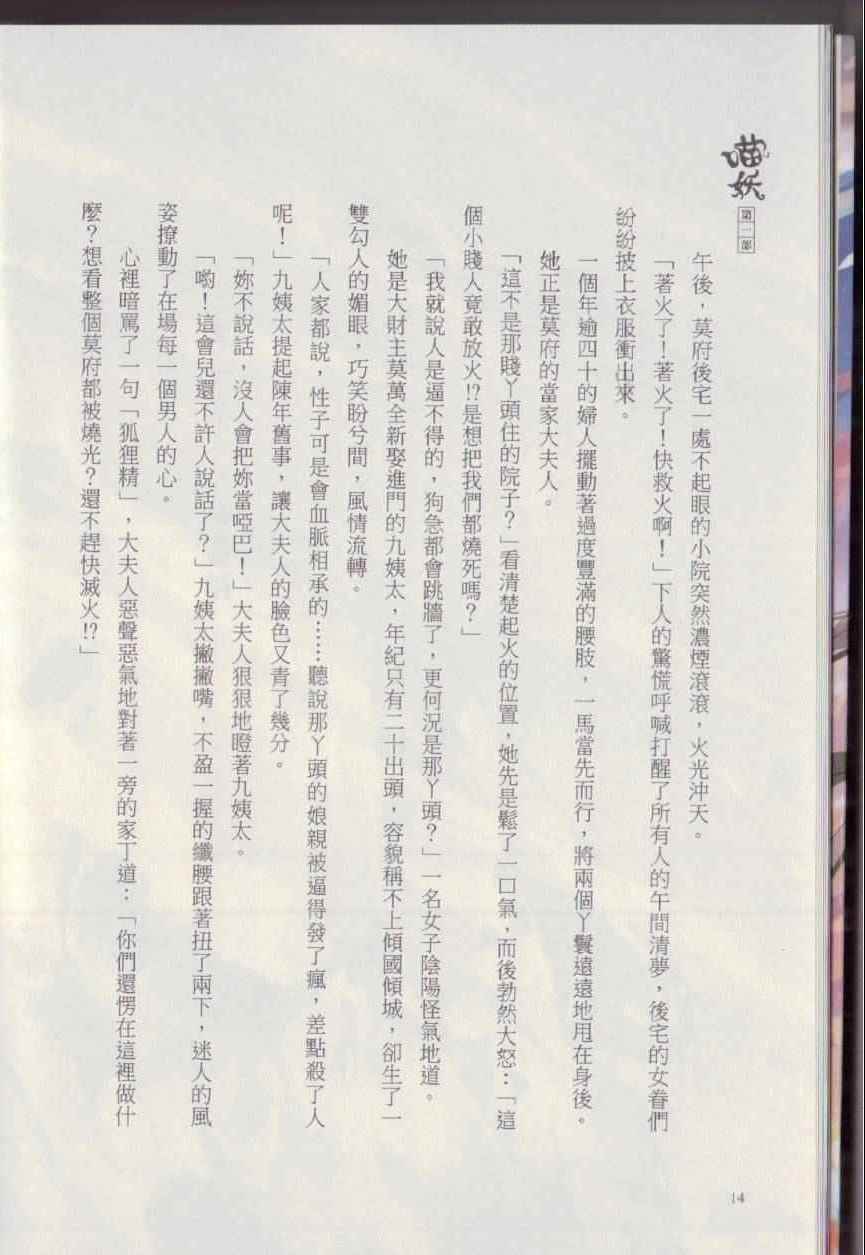 喵妖
第二部
午後，莫府後宅一處不起眼的小院突然濃煙滾滾，火光沖天。
「著火了！著火了！快救火啊！」下人的驚慌呼喊打醒了所有人的午間清夢，後宅的女眷們
紛紛披上衣服衝出來。
一個年逾四十的婦人擺動著過度豐滿的腰肢，一馬當先而行，將兩個丫鬟遠遠地甩在身後。
她正是莫府的當家大夫人。
「這不是那賤丫頭住的院子？」看清楚起火的位置，她先是鬆了一口氣，而後勃然大怒：「這
個小賤人竟敢放火!?是想把我們都燒死嗎？」
「我就說人是逼不得的，狗急都會跳牆了，更何況是那丫頭？」一名女子陰陽怪氣地道。
她是大財主莫萬全新娶進門的九姨太，年紀只有二十出頭，容貌稱不上傾國傾城，卻生了一
雙勾人的媚眼，巧笑盼兮間，風情流轉。
「人家都說，性子可是會血脈相承的……聽說那丫頭的娘親被逼得發了瘋，差點殺了人
呢！」九姨太提起陳年舊事，讓大夫人的臉色又青了幾分。
「妳不說話，沒人會把妳當啞巴！」大夫人狠狠地瞪著九姨太。
「喲！這會兒還不許人說話了？」九姨太撇撇嘴，不盈一握的纖腰跟著扭了兩下，迷人的風
姿撩動了在場每一個男人的心。
心裡暗罵了一句「狐狸精」，大夫人惡聲惡氣地對著一旁的家丁道：「你們還愣在這裡做什
麼？想看整個莫府都被燒光？還不趕快滅火!?」
14